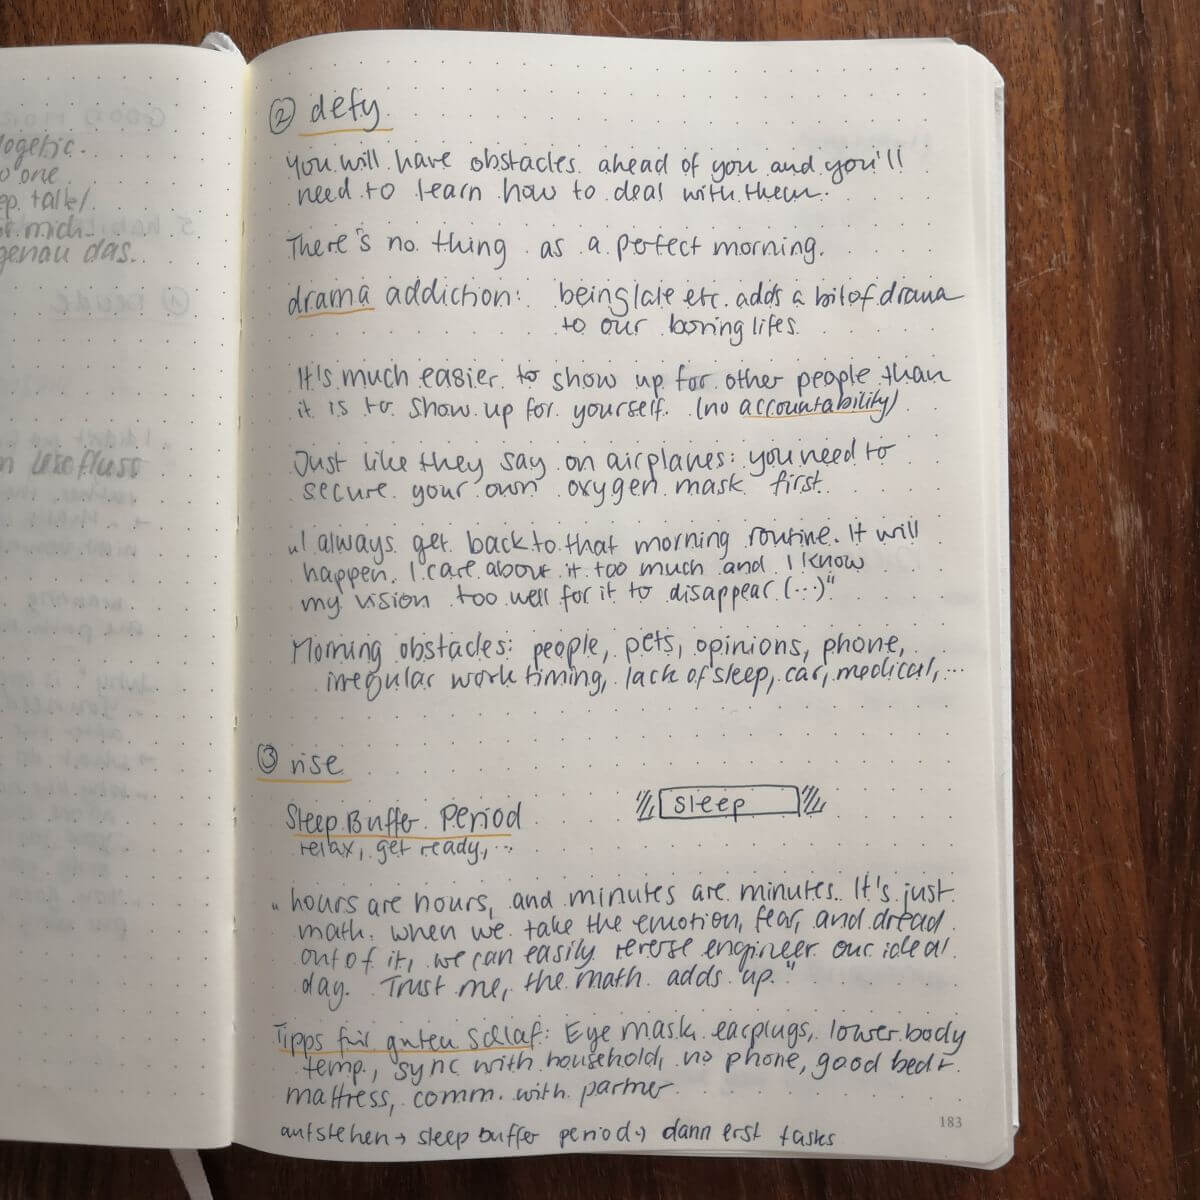 logetic.
o one
ep talk/
mich
genau das.
n Lesefluss
② defy
You will have obstacles ahead of you and you'll
need to learn how to deal with them.
There's no thing as a perfect morning.
drama addiction: being late etc. adds a bit of drama
to our boring lifes.
It's much easier to show up for other people than
it is to show up for yourself. (no accountability)
Just like they say on airplanes: you need to
secure your own oxygen mask first.
„I always get back to that morning routine. It will
happen. I care about it too much and I know
my vision too well for it to disappear (...)"
Morning obstacles: people, pets, opinions, phone,
irregular work timing, lack of sleep, car, medical, ...
③ rise
Sleep Buffer Period
sleep
relax, get ready, ...
„hours are hours, and minutes are minutes. It's just
math. When we take the emotion, fear, and dread
out of it, we can easily reverse engineer our ideal
day. Trust me, the math adds up."
Tipps für guten Schlaf: Eye mask, earplugs, lower body
temp., sync with household, no phone, good bed +
mattress, comm. with partner
aufstehen → sleep buffer period → dann erst tasks
183